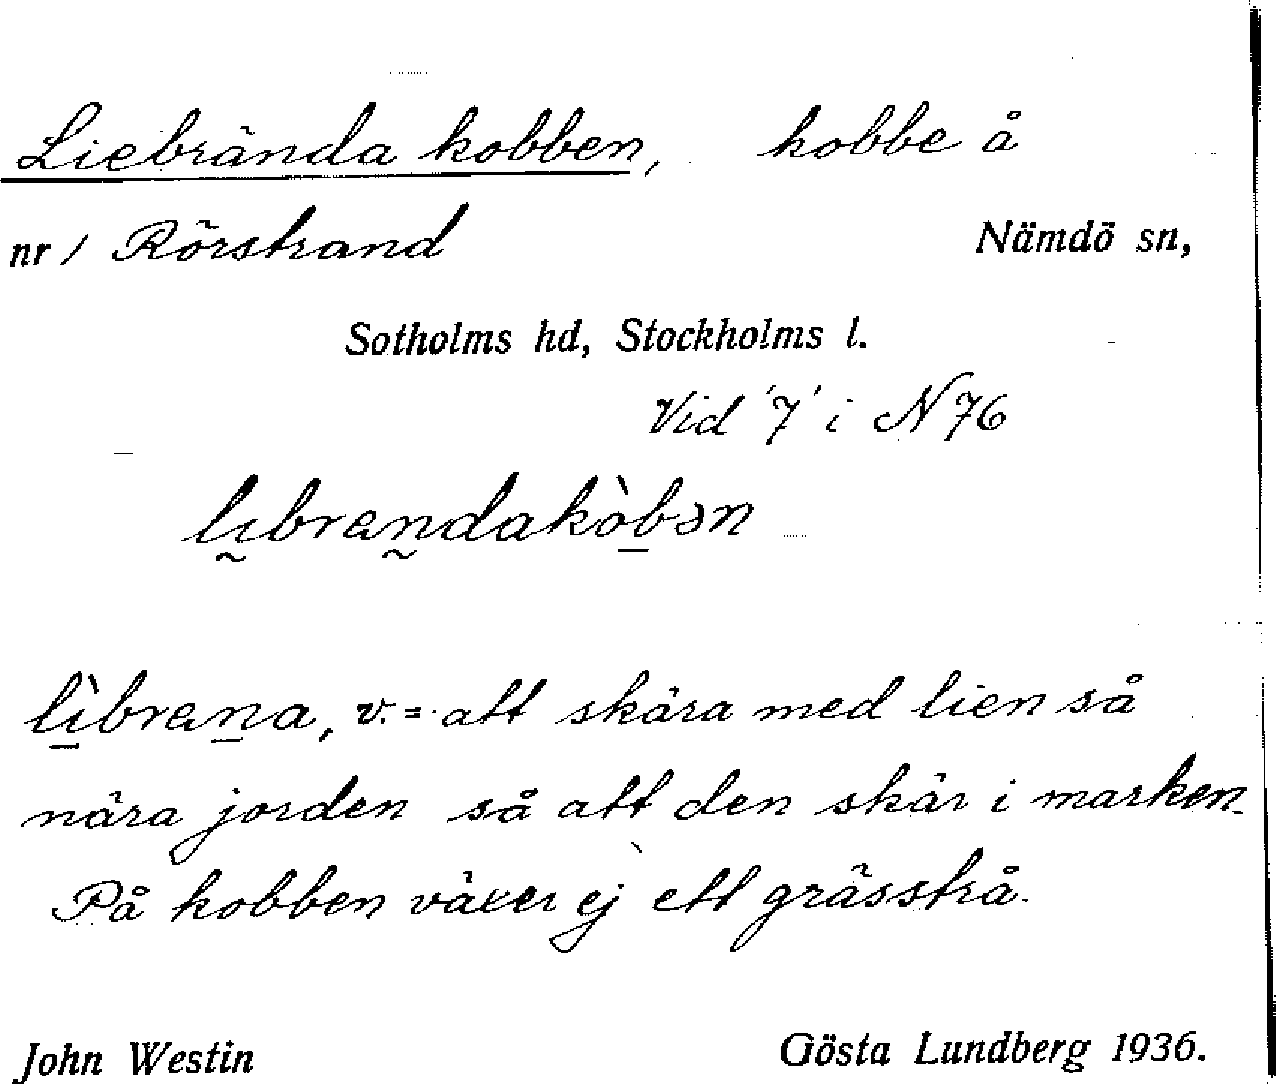 Liebrända kobben, kobbe å
nr 1 Rörstrand Nämdö sn,
Sotholms hd, Stockholms l.
Vid '7' i N76
lı̰bren̰dakòb̠ən
lı̠̀bren̠a, v. = att skära med lien så
nära jorden så att den skär i marken.
På kobben växer ej ett grässtrå.
John Westin Gösta Lundberg 1936.